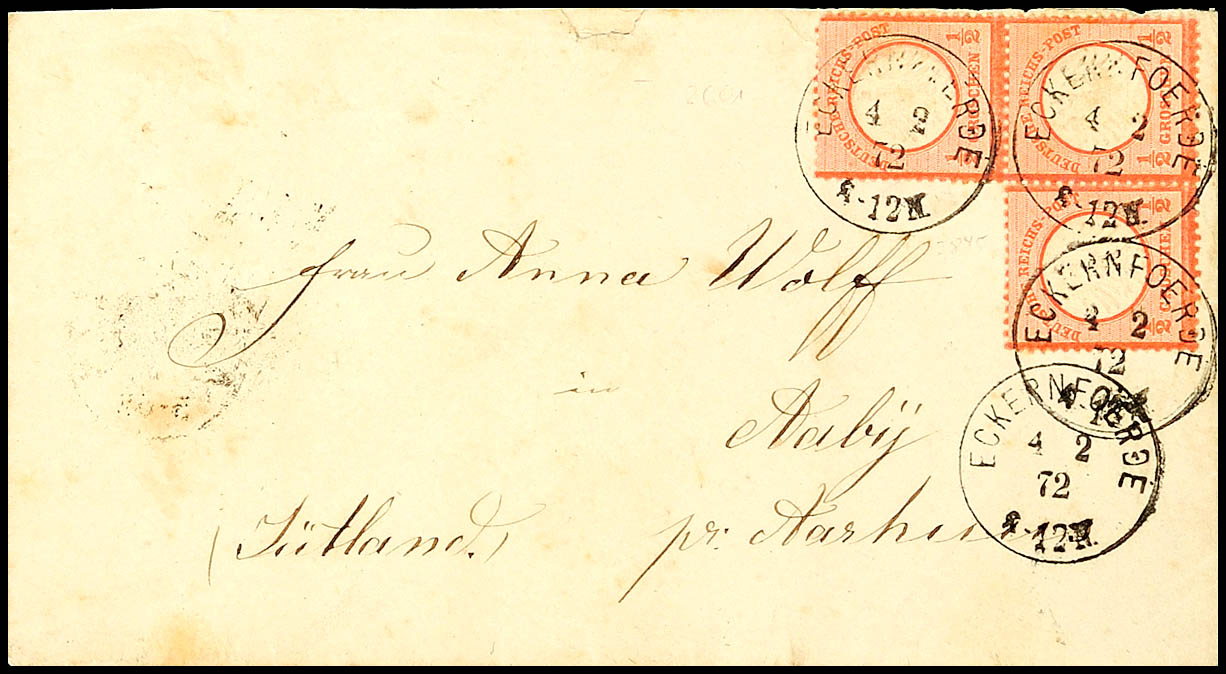 DEUTSCHE REICHS-POST ½ GROSCHEN ½
DEUTSCHE REICHS-POST ½ GROSCHEN ½
DEUTSCHE REICHS-POST ½ GROSCHEN ½
ECKERNFOERDE
4 2
72
-12N.
ECKERNFOERDE
4 2
72
-12N.
ECKERNFOERDE
4 2
72
ECKERNFOERDE
4 2
72
-12N.
Frau Anna Wolff
in
Aabÿ
(Jütland.) pr. Aarhuus